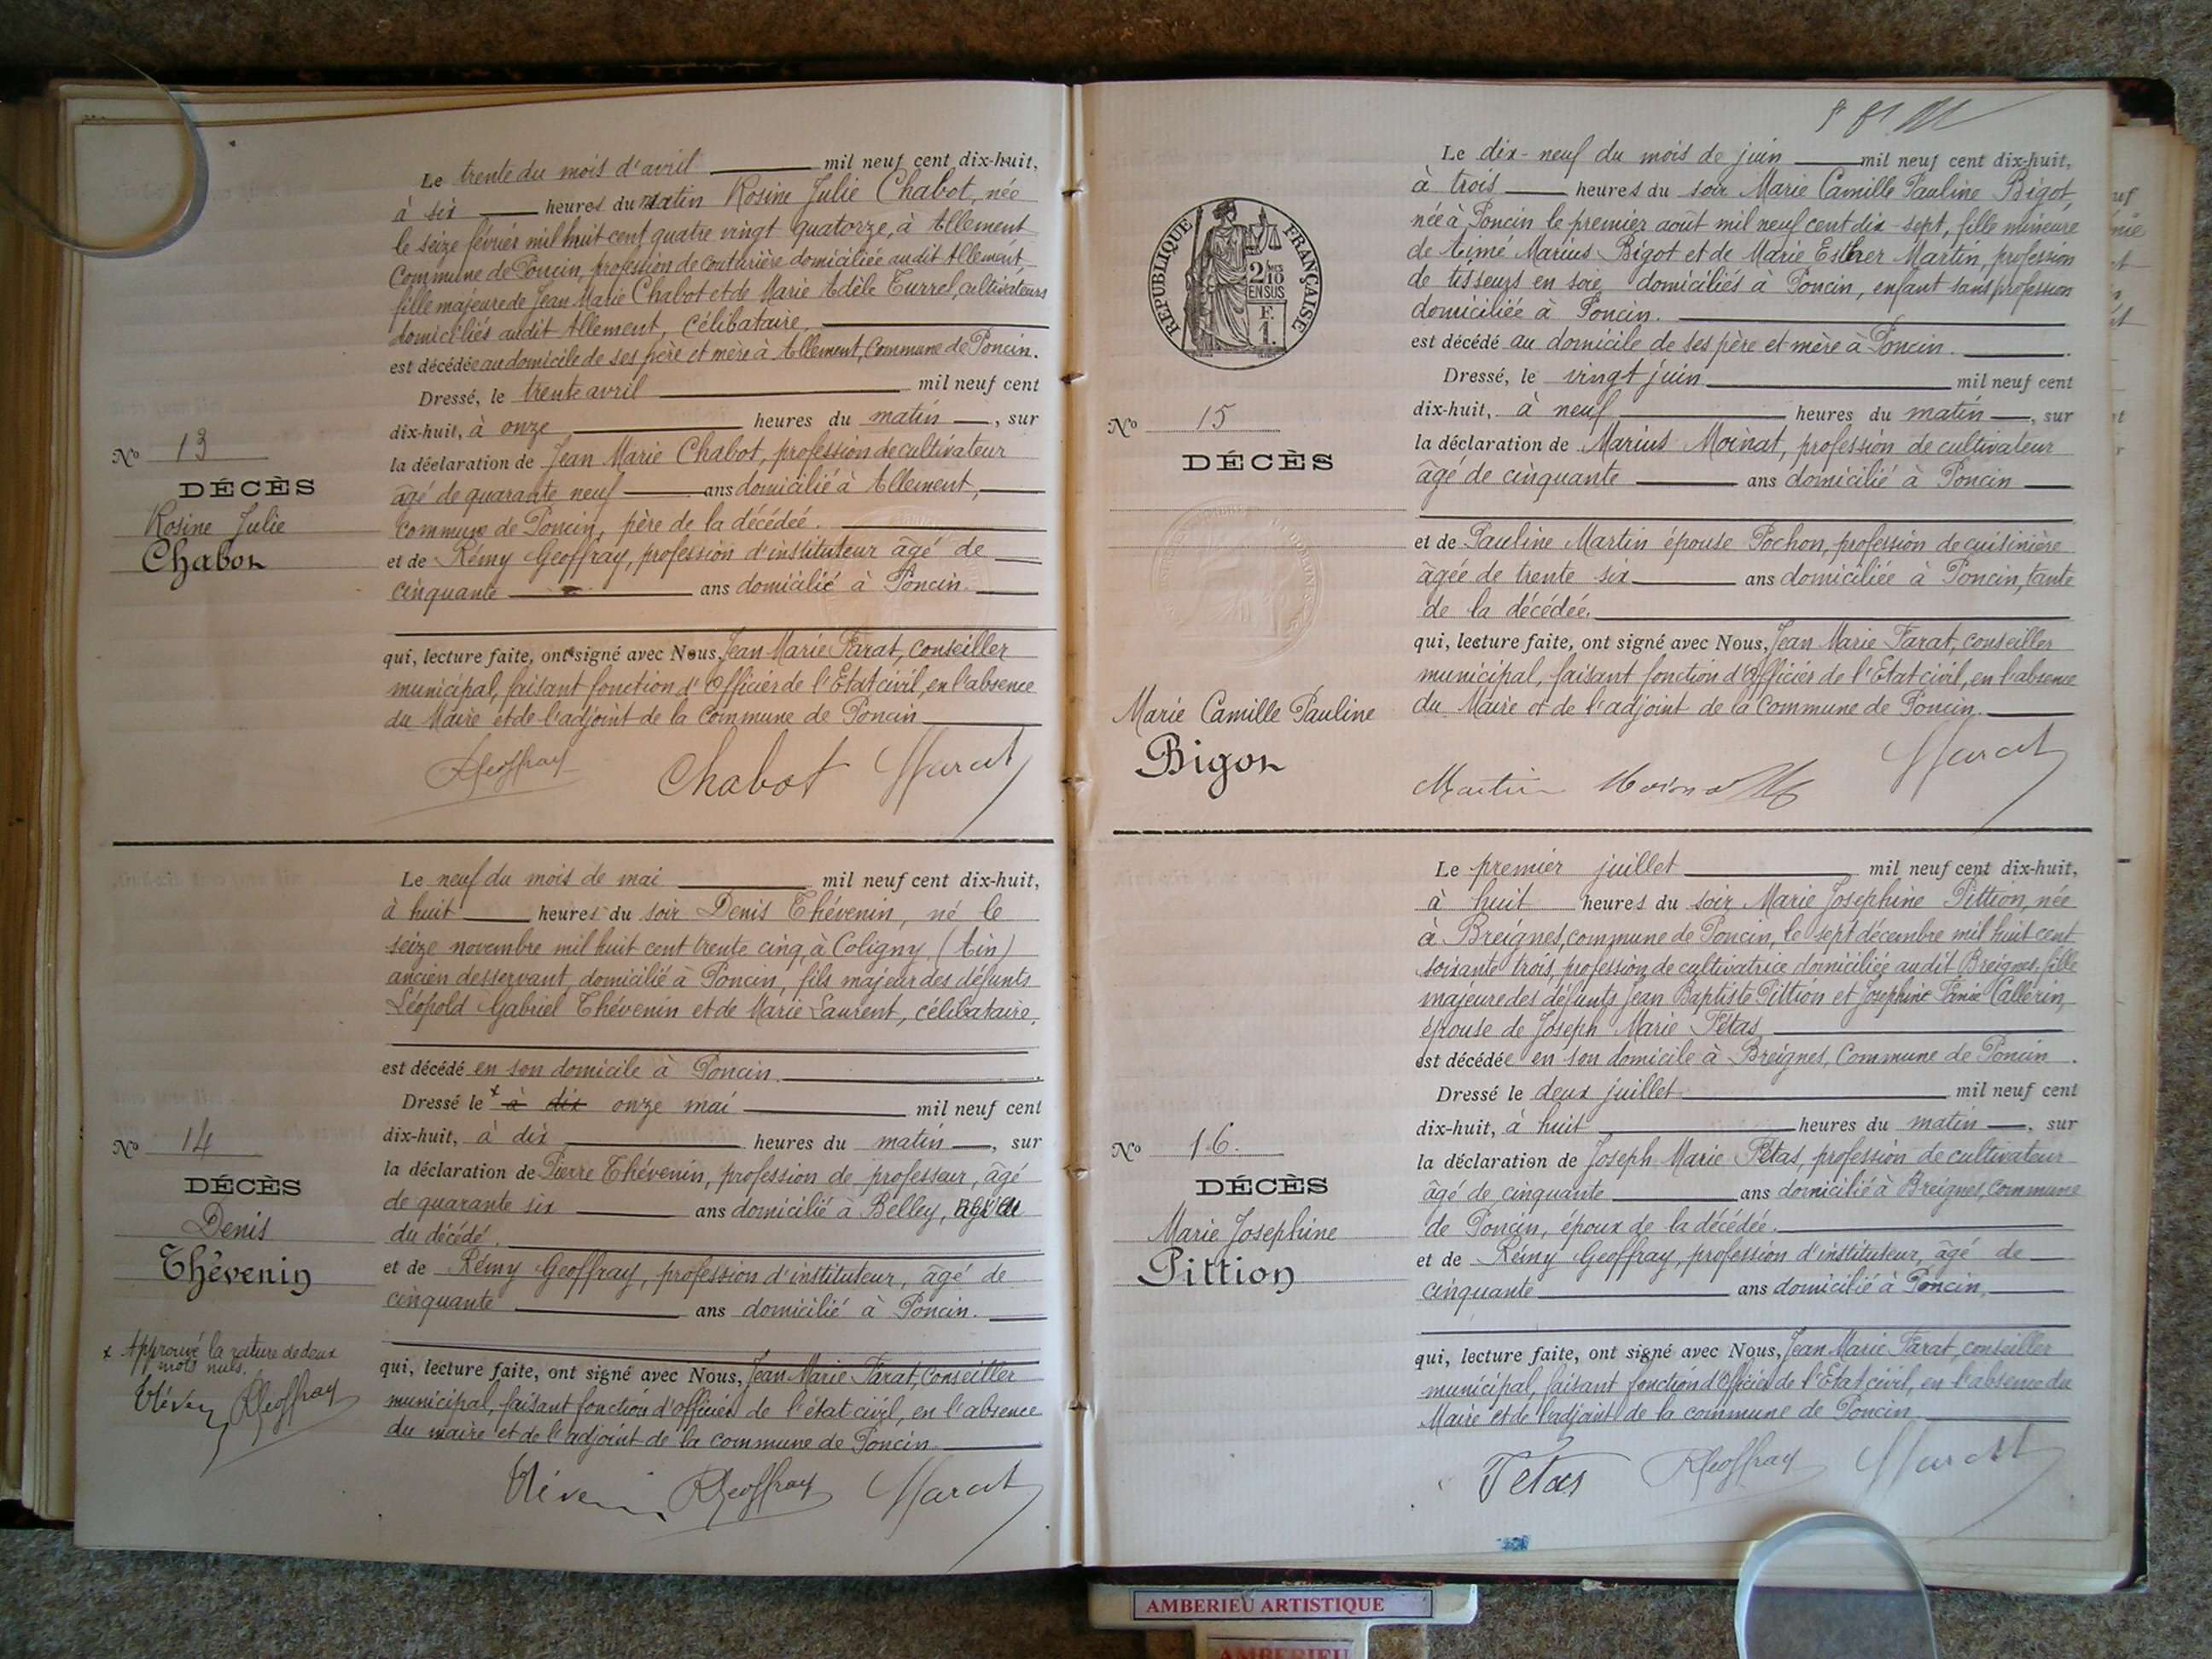 Le trente du mois d'avril mil neuf cent dix-huit,
à six heures du matin Rosine Julie Chabot, née
le seize février mil huit cent quatre vingt quatorze, à Allement
Commune de Poncin, profession de couturière domiciliée au dit Allement
fille majeure de Jean Marie Chabot et de Marie Adèle Turrel, cultivateurs
domiciliés audit Allement, Célibataire.
est décédée au domicile de ses père et mère à Allement, Commune de Poncin.
Dressé, le trente avril mil neuf cent
dix-huit, à onze heures du matin, sur
la déclaration de Jean Marie Chabot, profession de cultivateur
âgé de quarante neuf ans domicilié à Allement,
commune de Poncin, père de la décédée.
et de Rémy Geoffray, profession d'instituteur âgé de
cinquante ans domicilié à Poncin.
qui, lecture faite, ont signé avec Nous, Jean Marie Farat, Conseiller
municipal, faisant fonction d'Officier de l'Etat civil, en l'absence
du Maire et de l'adjoint de la Commune de Poncin
RGeoffray Chabot Farat
No 13
DÉCÈS
Rosine Julie
Chabot
Le neuf du mois de mai mil neuf cent dix-huit,
à huit heures du soir Denis Thévenin, né le
seize novembre mil huit cent trente cinq à Coligny (Ain)
ancien desservant, domicilié à Poncin, fils majeur des défunts
Léopold Gabriel Thévenin et de Marie Laurent, célibataire,
est décédé en son domicile à Poncin.
Dressé le x à dix onze mai mil neuf cent
dix-huit, à dix heures du matin, sur
la déclaration de Pierre Thévenin, profession de professeur, âgé
de quarante six ans domicilié à Belley,
du décédé.
et de Rémy Geoffray, profession d'instituteur, âgé de
cinquante ans domicilié à Poncin.
qui, lecture faite, ont signé avec Nous, Jean Marie Farat, Conseiller
municipal, faisant fonction d'officier de l'état civil, en l'absence
du maire et de l'adjoint de la commune de Poncin.
RGeoffray Farat
No 14
DÉCÈS
Denis
Thévenin
x Approuvé la rature de deux
mots nuls.
RGeoffray
RÉPUBLIQUE FRANÇAISE
2/10
EN SUS
F.
1.
Le dix-neuf du mois de juin mil neuf cent dix-huit,
à trois heures du soir Marie Camille Pauline Bigot,
née à Poncin le premier août mil neuf cent dix-sept, fille mineure
de Aimé Marius Bigot et de Marie Esther Martin, profession
de tisseurs en soie, domiciliés à Poncin, enfant sans profession
domiciliée à Poncin.
est décédé au domicile de ses père et mère à Poncin.
Dressé, le vingt juin mil neuf cent
dix-huit, à neuf heures du matin, sur
la déclaration de Marius Moinat, profession de cultivateur
âgé de cinquante ans domicilié à Poncin
et de Pauline Martin épouse Pochon, profession de cuisinière
âgée de trente six ans domiciliée à Poncin, tante
de la décédée.
qui, lecture faite, ont signé avec Nous, Jean Marie Farat, Conseiller
municipal, faisant fonction d'Officier de l'Etat civil, en l'absence
du Maire et de l'adjoint de la Commune de Poncin.
Martin Moinat Farat
No 15
DÉCÈS
Marie Camille Pauline
Bigot
Le premier juillet mil neuf cent dix-huit,
à huit heures du soir Marie Josephine Pittion, née
à Breignes, commune de Poncin, le sept décembre mil huit cent
soixante trois, profession de cultivatrice domiciliée audit Breignes, fille
majeure des défunts Jean Baptiste Pittion et Josephine Callerin,
épouse de Joseph Marie Tétas
est décédée en son domicile à Breignes, Commune de Poncin.
Dressé le deux juillet mil neuf cent
dix-huit, à huit heures du matin, sur
la déclaration de Joseph Marie Tétas, profession de cultivateur
âgé de cinquante ans domicilié à Breignes, commune
de Poncin, époux de la décédée.
et de Rémy Geoffray, profession d'instituteur, âgé de
cinquante ans domicilié à Poncin,
qui, lecture faite, ont signé avec Nous, Jean Marie Farat, conseiller
municipal, faisant fonction d'Officier de l'Etat civil, en l'absence du
Maire et de l'adjoint de la commune de Poncin
Tetas RGeoffray Farat
No 16.
DÉCÈS
Marie Josephine
Pittion
AMBERIEU ARTISTIQUE
AMBERIEU